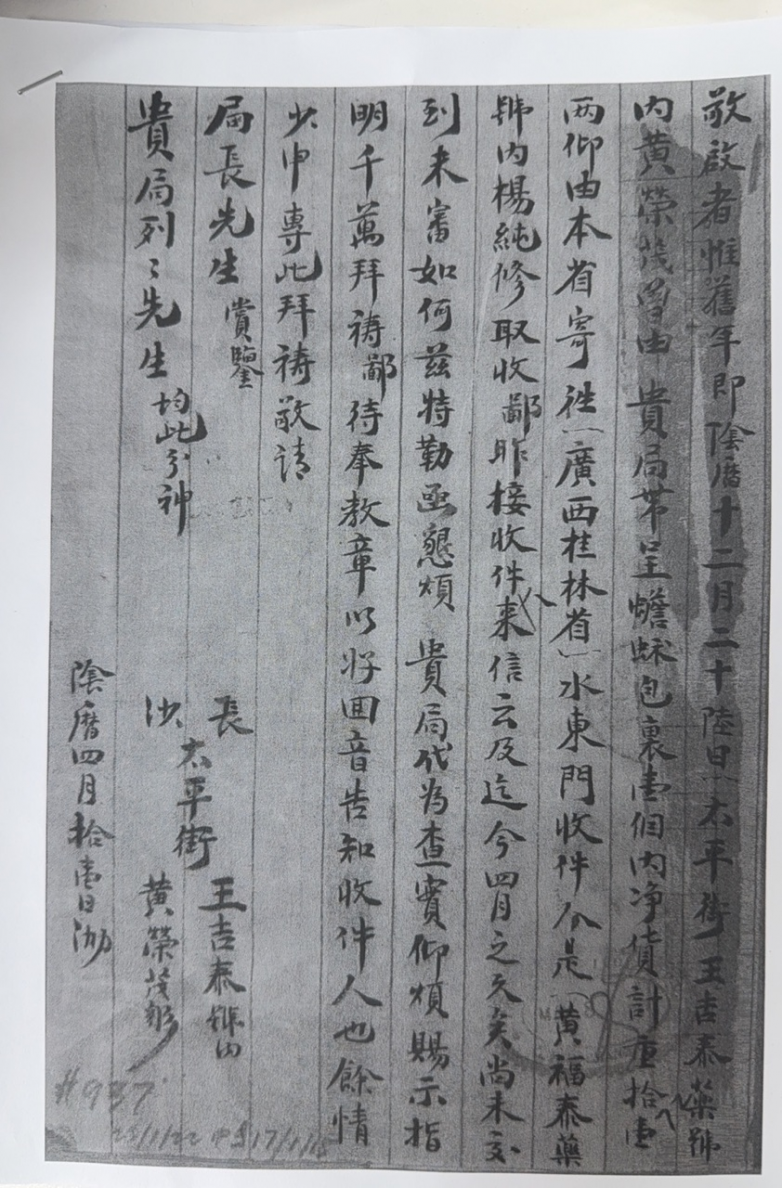 敬啟者惟舊年即陰曆十二月二十陸日太平街王吉泰藥號
内黄榮茂曾由 貴局帶呈蟾蜍包裹壹個内净貨計重拾壹
两仰由本省寄往廣西桂林省水東門收件人是黄福泰藥
號内楊純修取收鄙昨接收件人來信云及迄今四月之久矣尚未交
到未審如何兹特勒函懇煩 貴局代為查實仰煩賜示指
明千萬拜祷鄙待奉教章以好回音告知收件人也餘情
少申專此拜祷敬请
局長先生賞鑒
貴局列〻先生均此分神
長沙太平街王吉泰號内
黄榮茂
陰曆四月拾壹日泐
#937